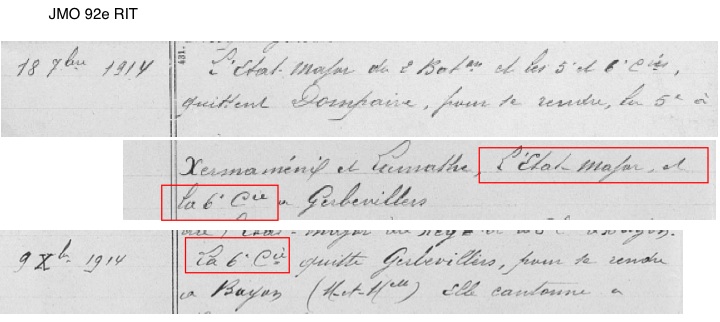 JMO 92e RIT
18 7bre 1914 L'Etat-Major du 2 Baton et les 5e et 6e Cies,
quittent Dompaire, pour se rendre, la 5e à
Xermaménil et Lamathe, L'Etat-Major, et
la 6e Cie a Gerbevillers
9 Xb 1914 La 6e Cie quitte Gerbevillers, pour se rendre
a Bayon (M-et-Melle) Elle cantonne a